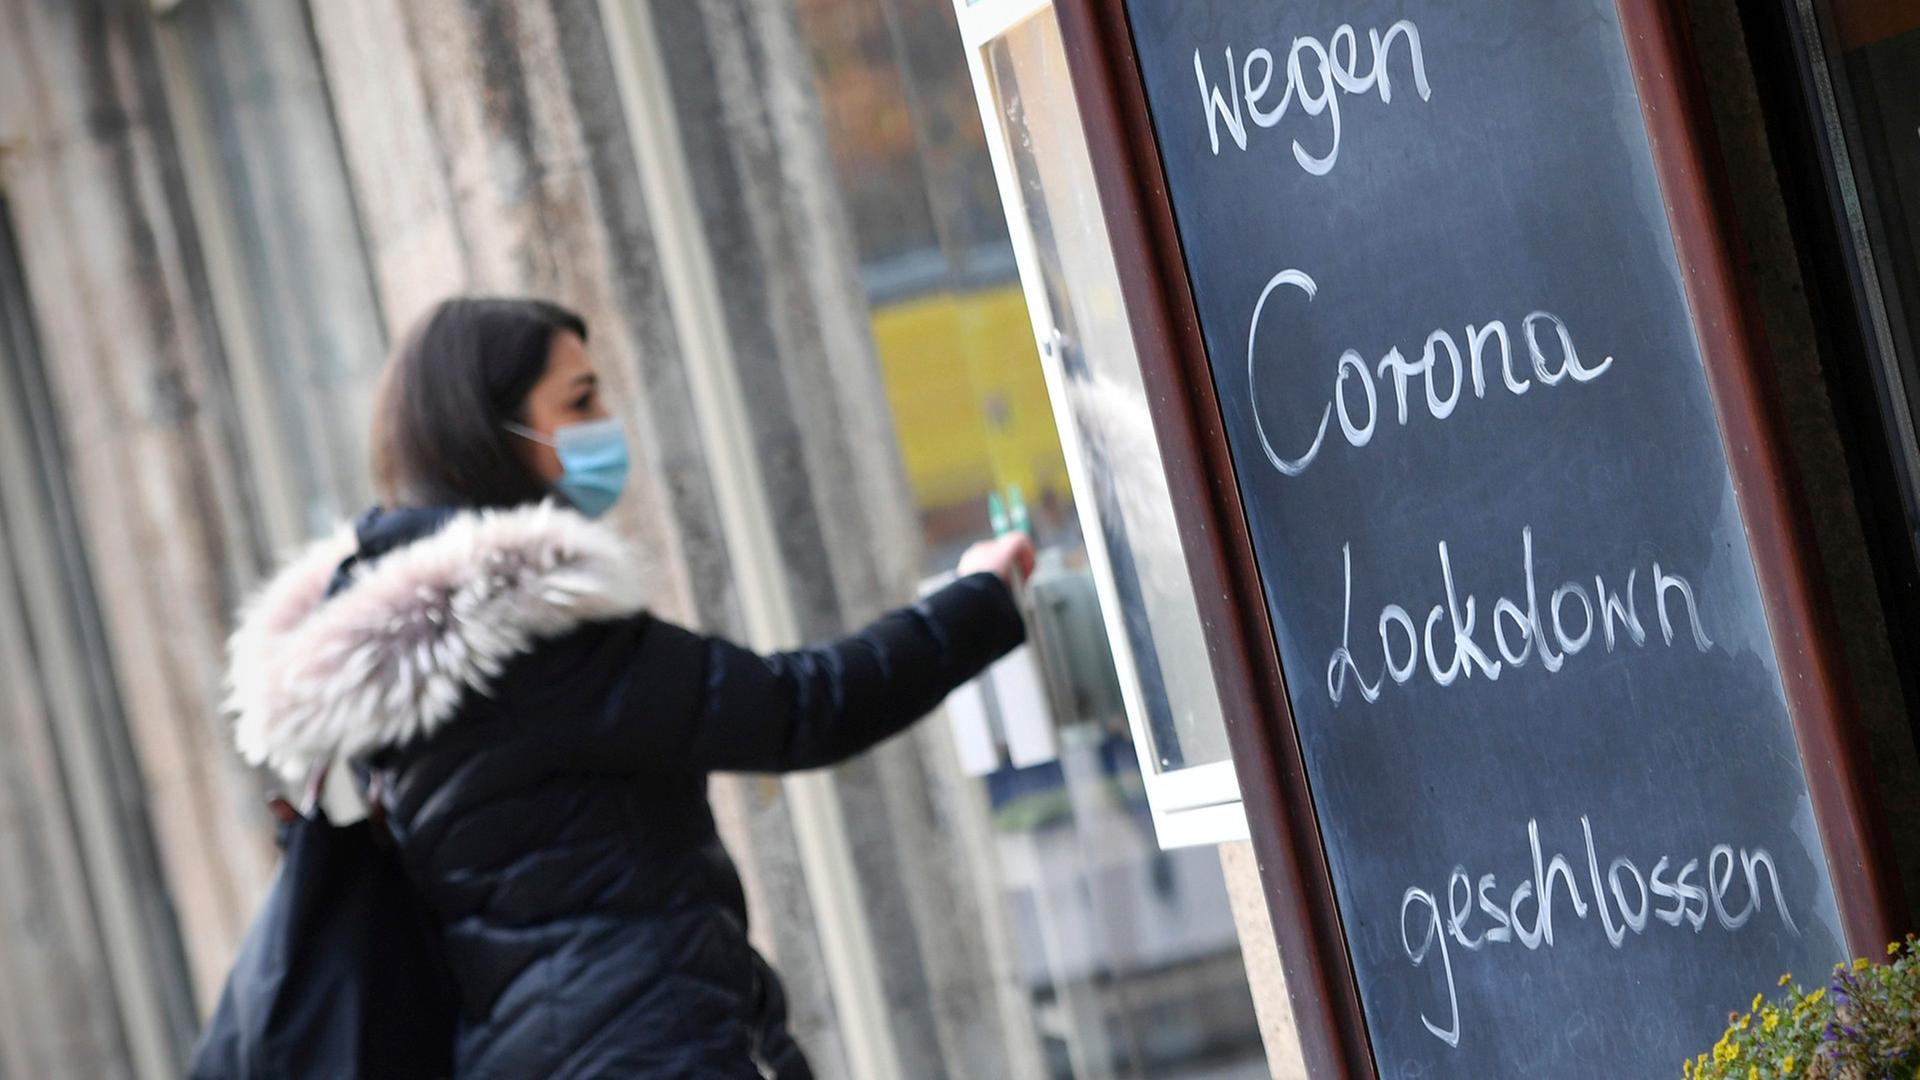 Wegen
Corona
Lockdown
geschlossen